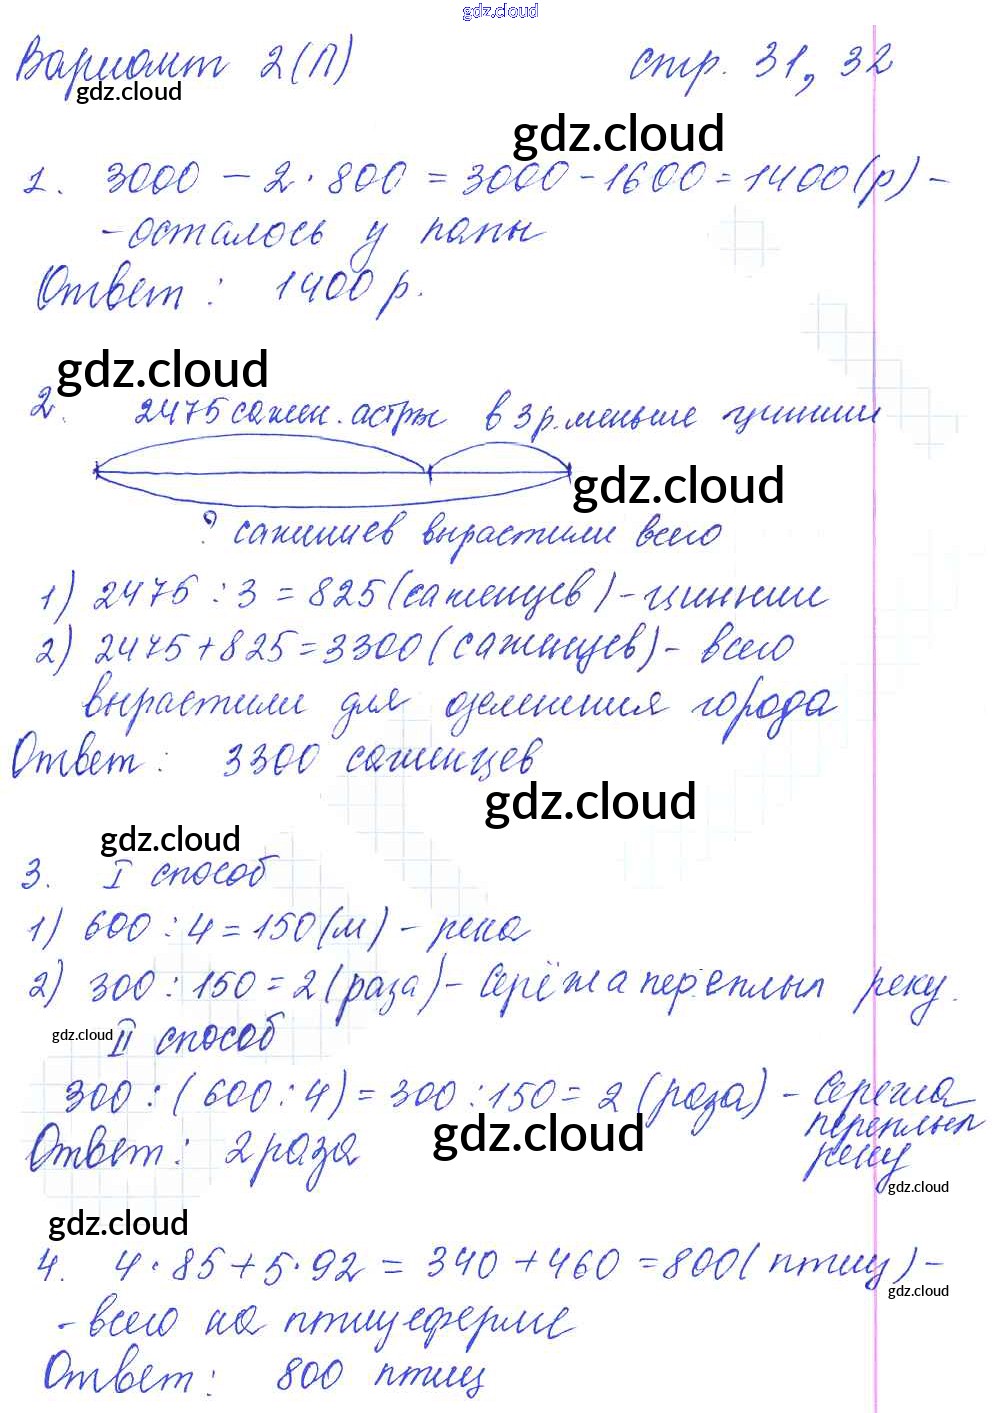 gdz.cloud
Вариант 2(П) стр. 31, 32
gdz.cloud
gdz.cloud
1. 3000 - 2 · 800 = 3000 - 1600 = 1400 (р) -
- осталось у папы
Ответ: 1400 р.
gdz.cloud
2. 2475 сажен. астры в 3 р. меньше циннии
gdz.cloud
? саженцев вырастили всего
1) 2475 : 3 = 825 (саженцев) - циннии
2) 2475 + 825 = 3300 (саженцев) - всего
вырастили для озеленения города
Ответ: 3300 саженцев
gdz.cloud
gdz.cloud
3. I способ
1) 600 : 4 = 150 (м) - река
2) 300 : 150 = 2 (раза) - Серёжа переплыл реку.
gdz.cloud II способ
300 : (600 : 4) = 300 : 150 = 2 (раза) - Сережа
переплыл
Ответ: 2 раза gdz.cloud реку
gdz.cloud
gdz.cloud
4. 4 · 85 + 5 · 92 = 340 + 460 = 800 (птиц) -
gdz.cloud
- всего на птицеферме
Ответ: 800 птиц